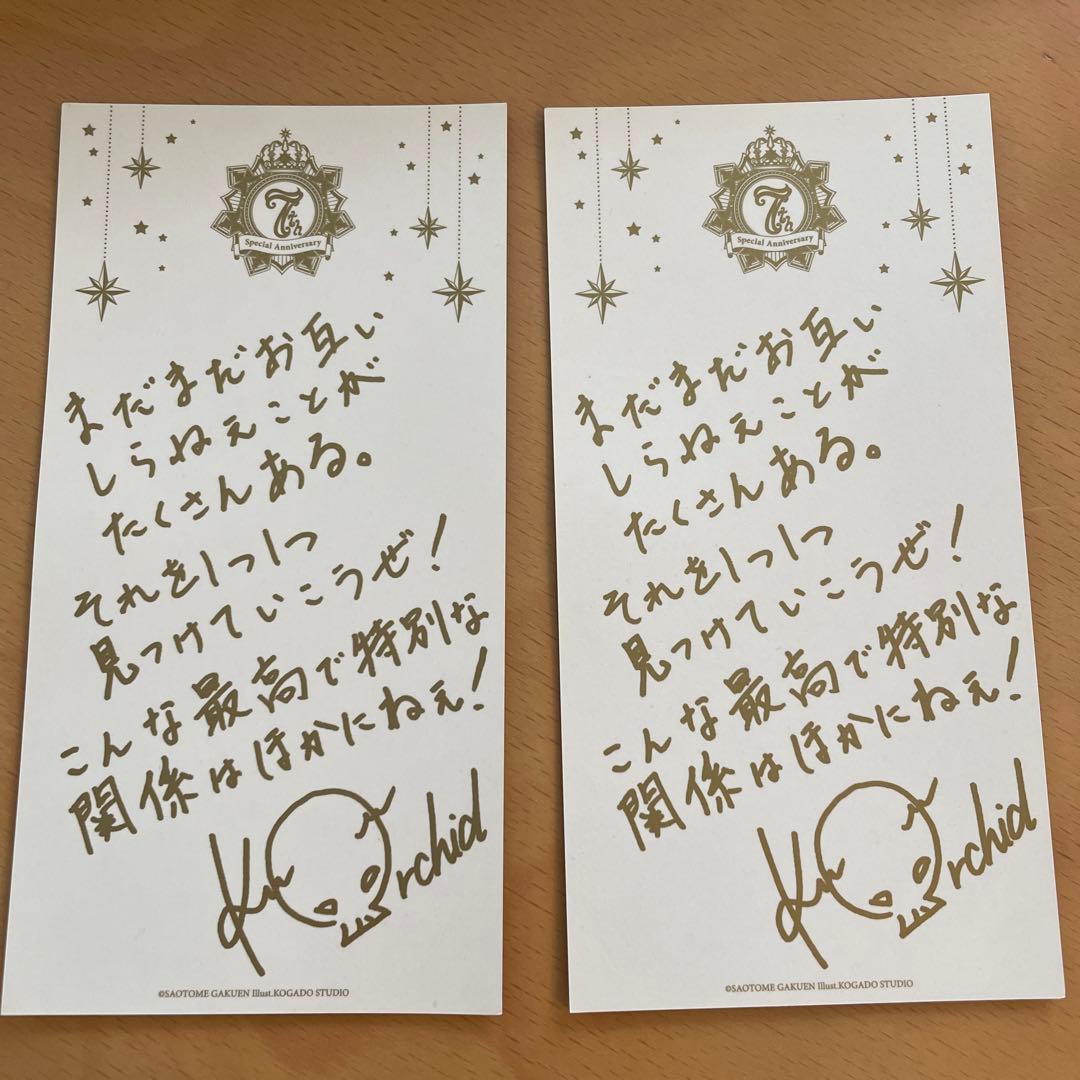 7th
Special Anniversary
まだまだお互い
しらねぇことが
たくさんある。
それを1つ1つ
見つけていこうぜ!
こんな最高で特別な
関係はほかにねぇ!
Orchid
©SAOTOME GAKUEN Illust.KOGADO STUDIO
7th
Special Anniversary
まだまだお互い
しらねぇことが
たくさんある。
それを1つ1つ
見つけていこうぜ!
こんな最高で特別な
関係はほかにねぇ!
Orchid
©SAOTOME GAKUEN Illust.KOGADO STUDIO